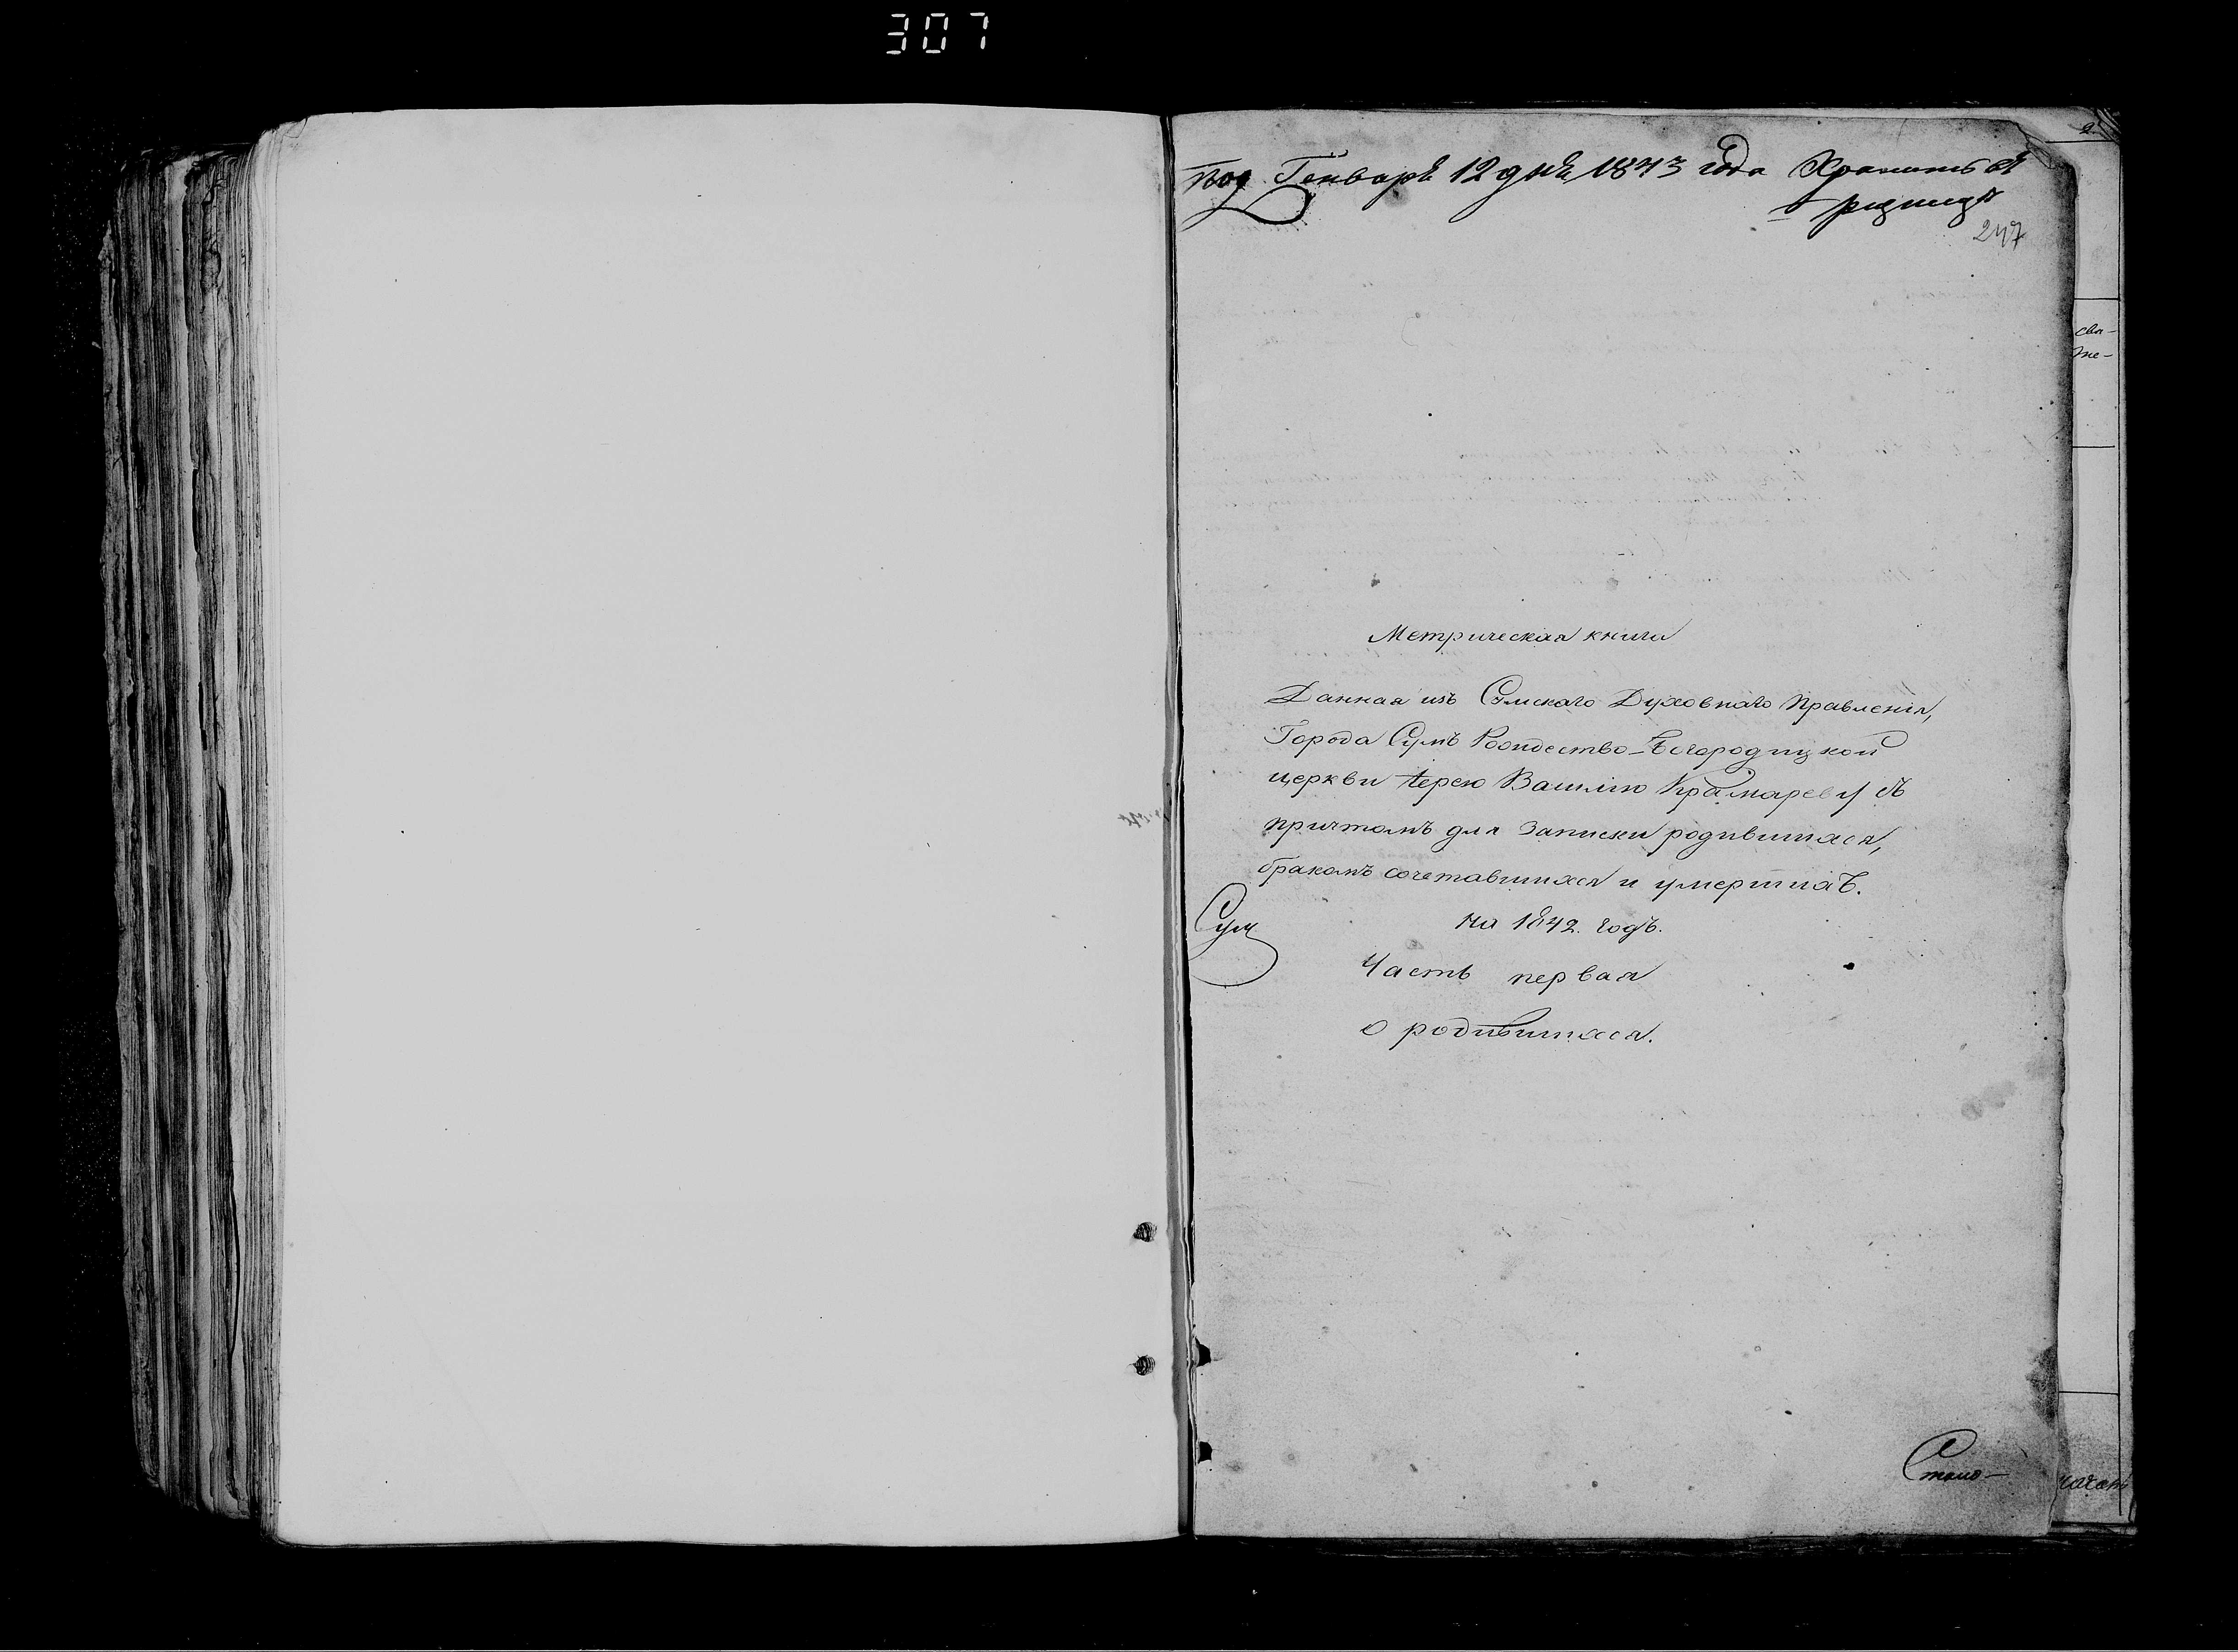 307
Под. Генваря 12 дня 1843 года Хранить въ
ризницѣ
247
свя-
ще-
Метрическая книга
Данная изъ Сумскаго Духовнаго Правленія,
Города Сумъ Рождество-Богородицкой
церкви Іерею Василію Крамареву съ
причтомъ для записки родившихся,
бракомъ сочетавшихся и умершихъ.
Сум
на 1842. годъ.
Часть первая
о родившихся.